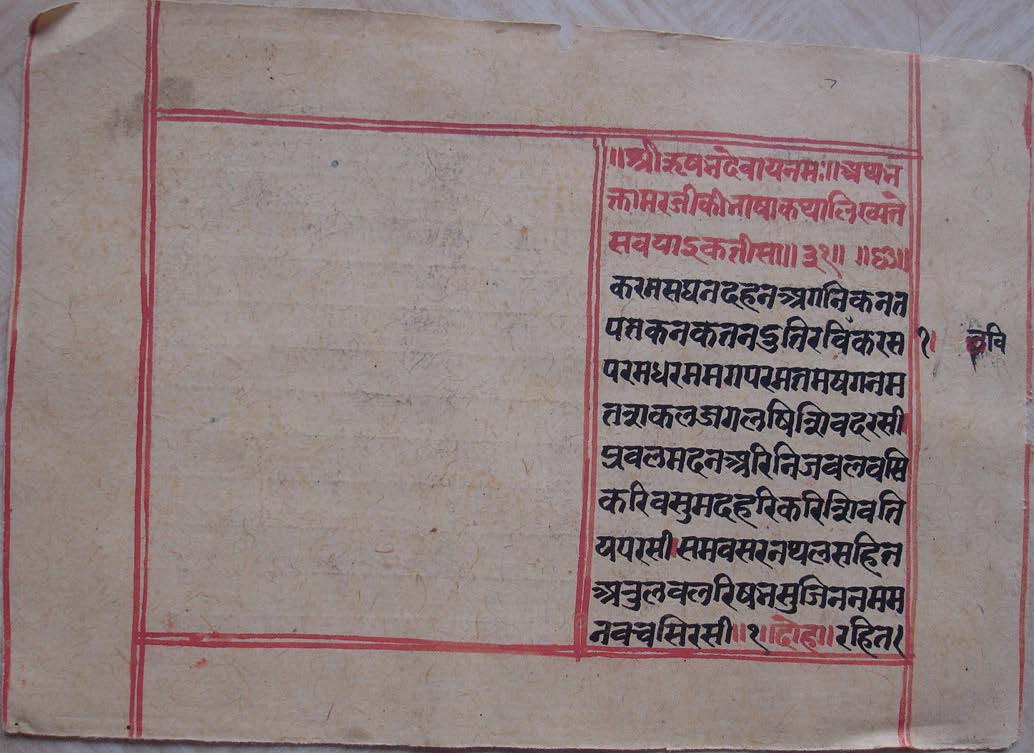 ॥श्रीऋषभदेवायनमः॥अथभ
क्तामरजीकीभाषाकथालिख्यते
सवयाइकतीसा॥३१॥ ॥छ॥
करमसघनदहनअगनिकनत
पतकनकतनदुतिरविंकरस
परमधरममगपरमतमषगनम
कलजगलषिशिवदरसी
प्रवलमदनअरिनिजवलवसि
करिवसुमदहरिकरिशिवति
यपरसीसमवसरनथलसहित
अतुलवलरिषभसुजिननमम
नवचसिरसी॥१॥दोहा॥रहित१
१। वि